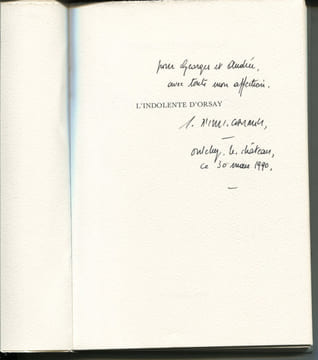 pour Georges et Andrée,
avec toute mon affection.
L'INDOLENTE D'ORSAY
oulchy, le château,
ce 30 mars 1990,